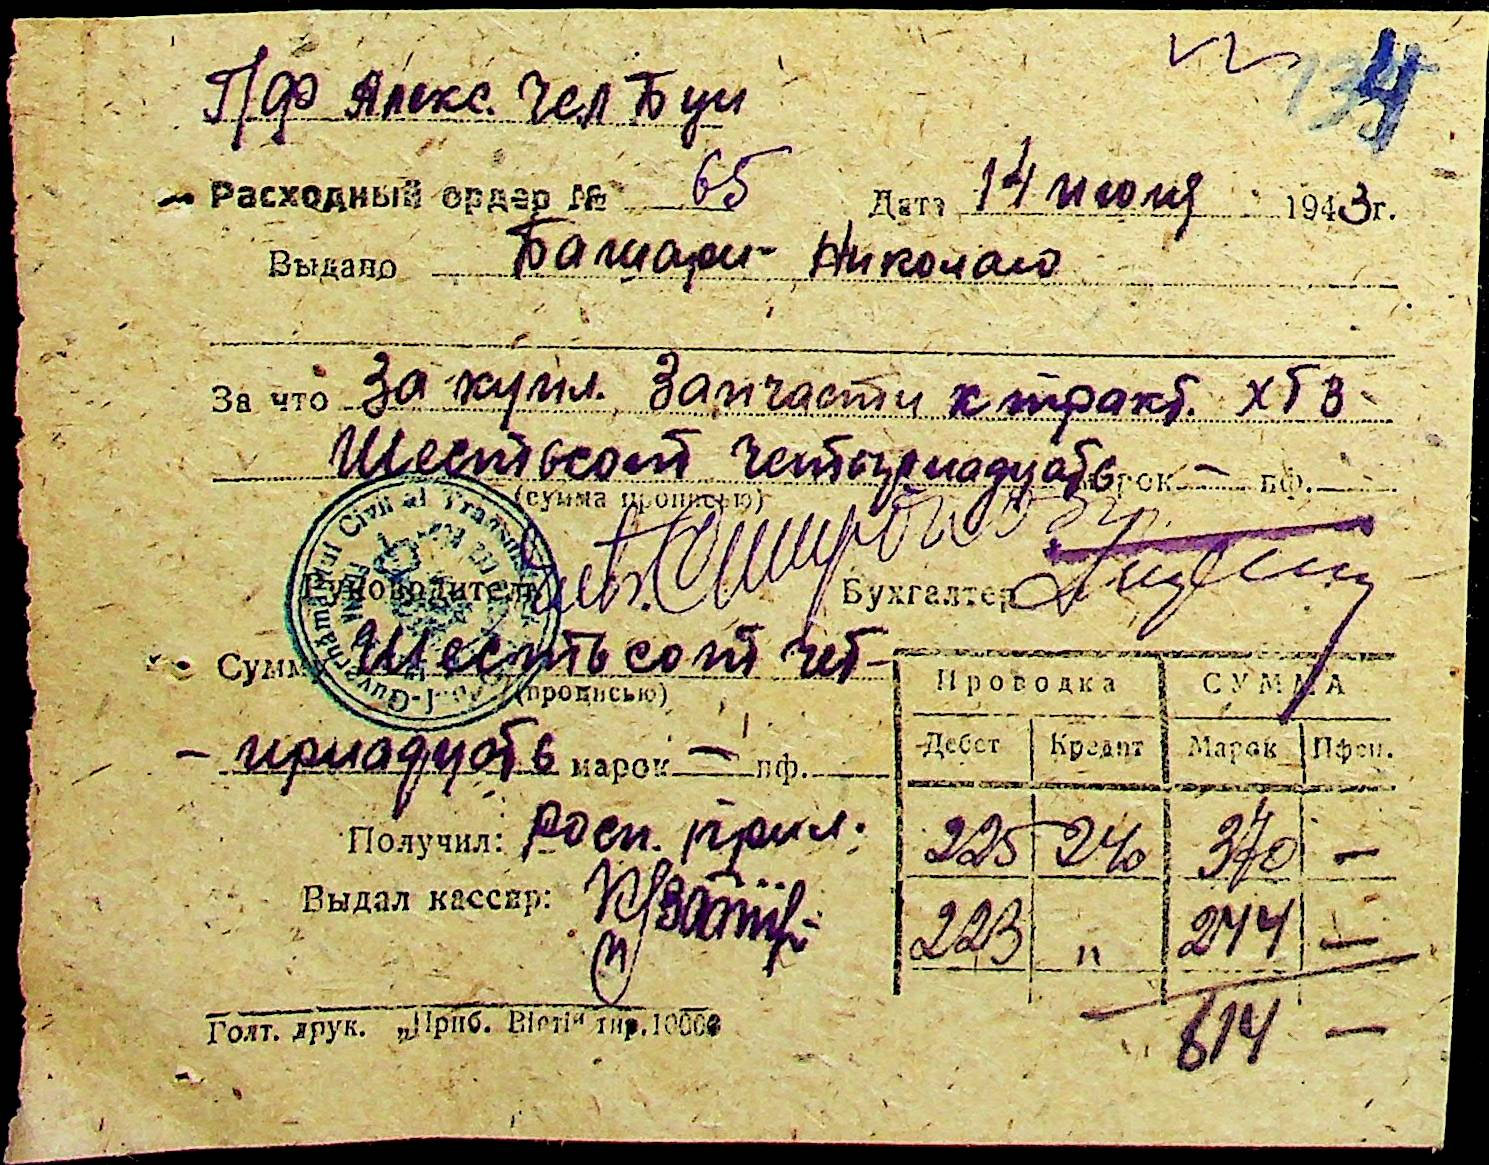 134
ПФ Алекс. Чел Буи
Расходный ордер № 65 Дата 14 июля 1943г.
Выдано Башари Николаю
За что За купл. Запчасти к тракт. ХТЗ
Шестьсот четырнадцать марок — пф.
(сумма прописью)
Руководитель Бухгалтер
Guvernământul Civil al Transnistriei
Сумма Шестьсот чет-
(прописью)
-ырнадцать марок — пф.
Проводка СУММА
Дебет Кредит Марок Пфен.
225 240 370 —
223 " 244 —
614 —
Получил: Росп. прил.
Выдал кассир:
Голт. друк. „Приб. Вісті" тир.10000